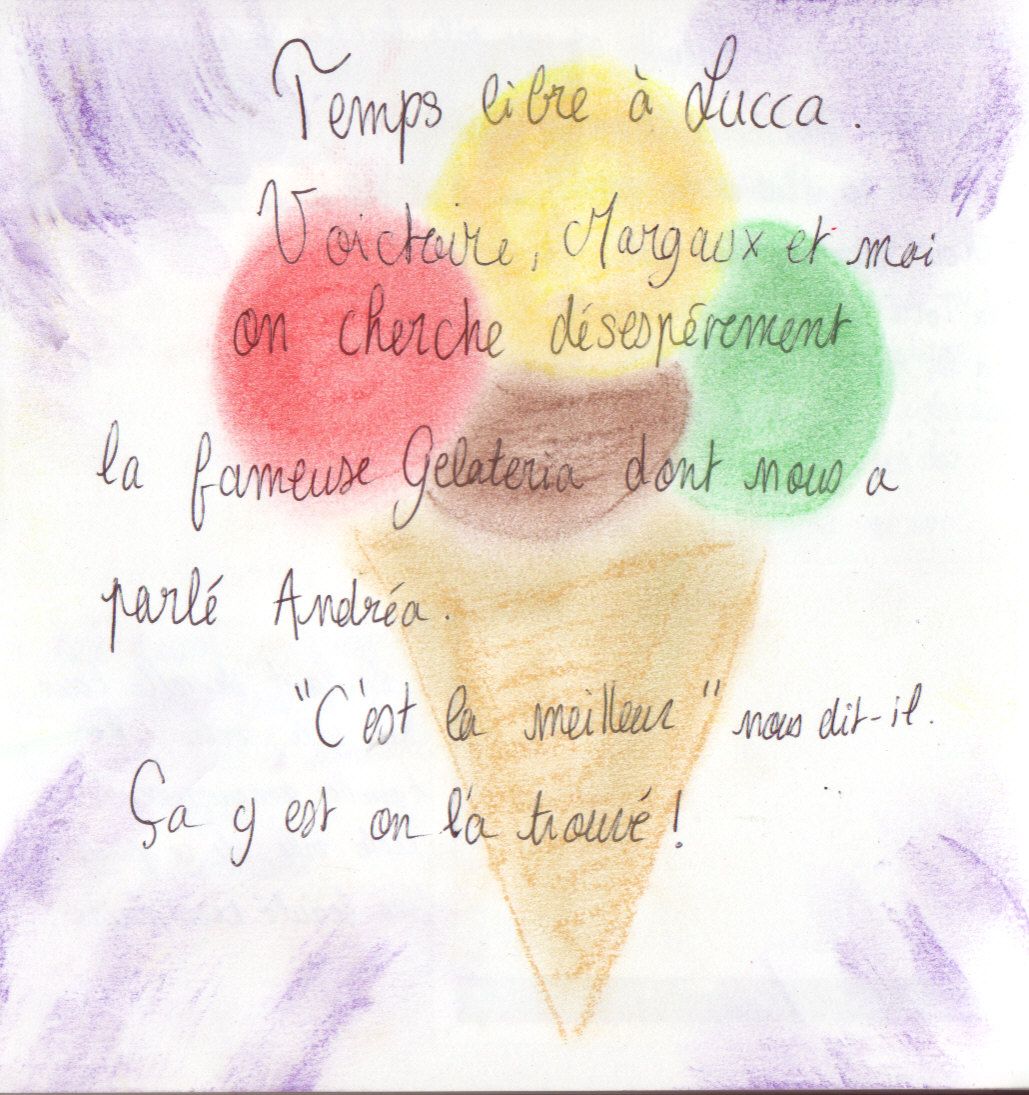 Temps libre à Lucca.
Voictoire, Margaux et moi
on cherche désespérement
la fameuse Gelateria dont nous a
parlé Andréa.
"C'est la meilleur" nous dit-il.
Ça y est on l'a trouvé !